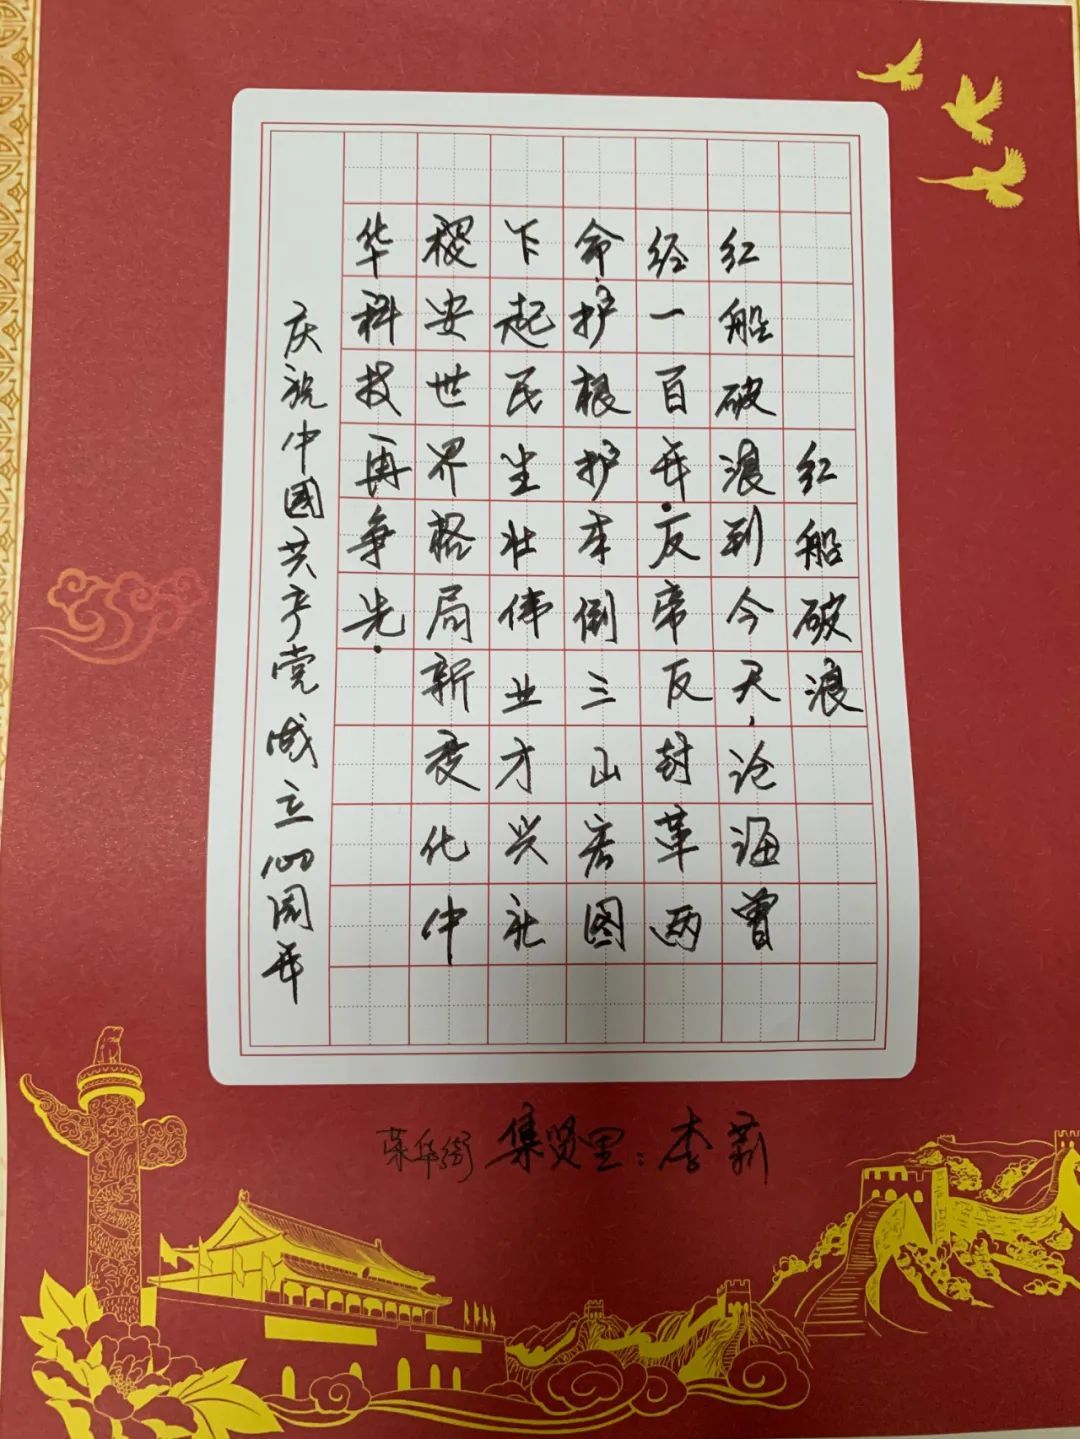 红船破浪
红船破浪到今天，沧海曾
经一百年。反帝反封革两
命，护根护本倒三山。宏图
乍起民生壮伟业才兴社
稷安世界格局新变化中
华科技再争先。
庆祝中國共产党成立100周年
荣华街 集贤里：李莉